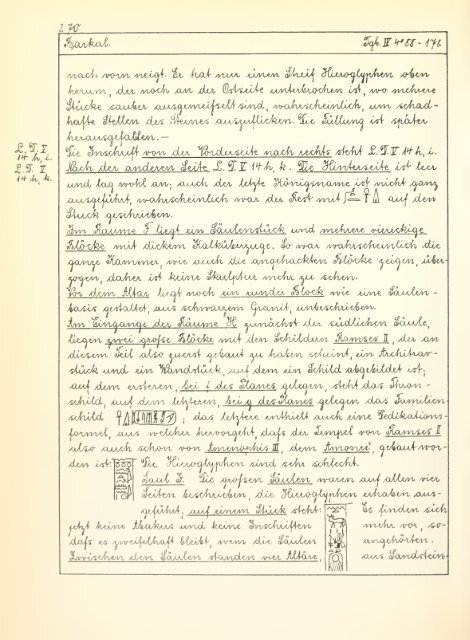 Z W
Barkal. Tgb. IV 4° 86 - 178
nach vorn neigt. Er hat nur einen Streif Hieroglyphen oben
herum, der noch an der Ostseite unterbrochen ist, wo mehrere
Stücke sauber ausgemeißelt sind, wahrscheinlich, um schad-
hafte Stellen des Steines auszuflicken. Die Füllung ist später
herausgefallen.—
L. D. V
14 h, i.
L. D. V
14 h, k.
Die Inschrift von der Vorderseite nach rechts steht L. D. V 14 h, i.
Nach der anderen Seite L. D. V 14 h, k. Die Hinterseite ist leer
und lag wohl an; auch der letzte Königsname ist nicht ganz
ausgeführt, wahrscheinlich war der Rest mit auf den
Stuck geschrieben.
Im Raume F liegt ein Säulenstück und mehrere viereckige
Blöcke mit dickem Kalküberzuge. So war wahrscheinlich die
ganze Kammer, wie auch die angehackten Blöcke zeigen, über-
zogen, daher ist keine Skulptur mehr zu sehen.
Vor dem Altar liegt noch ein runder Block wie eine Säulen-
basis gestaltet, aus schwarzem Granit, unbeschrieben.
Am Eingange der Räume H zunächst der südlichen Säule,
liegen zwei große Blöcke mit den Schildern Ramses II, der an
diesem Teil also zuerst gebaut zu haben scheint, ein Architrav-
stück und ein Wandstück, auf dem ein Schild abgebildet ist;
auf dem ersteren, bei f des Planes gelegen, steht das Thron-
schild, auf dem letzteren, bei g des Planes gelegen das Familien-
schild ; das letztere enthielt auch eine Dedikations-
formel, aus welcher hervorgeht, daß der Tempel von Ramses II
also auch schon von Amenophis III, dem Amonrē, gebaut wor-
den ist: Die Hieroglyphen sind sehr schlecht.
Saal J. Die großen Säulen waren auf allen vier
Seiten beschrieben, die Hieroglyphen erhaben aus-
geführt; auf einem Stück steht: Es finden sich
jetzt keine Abakus und keine Inschriften mehr vor, so-
daß es zweifelhaft bleibt, wem die Säulen angehörten.
Zwischen den Säulen standen vier Altäre, aus Sandstein-